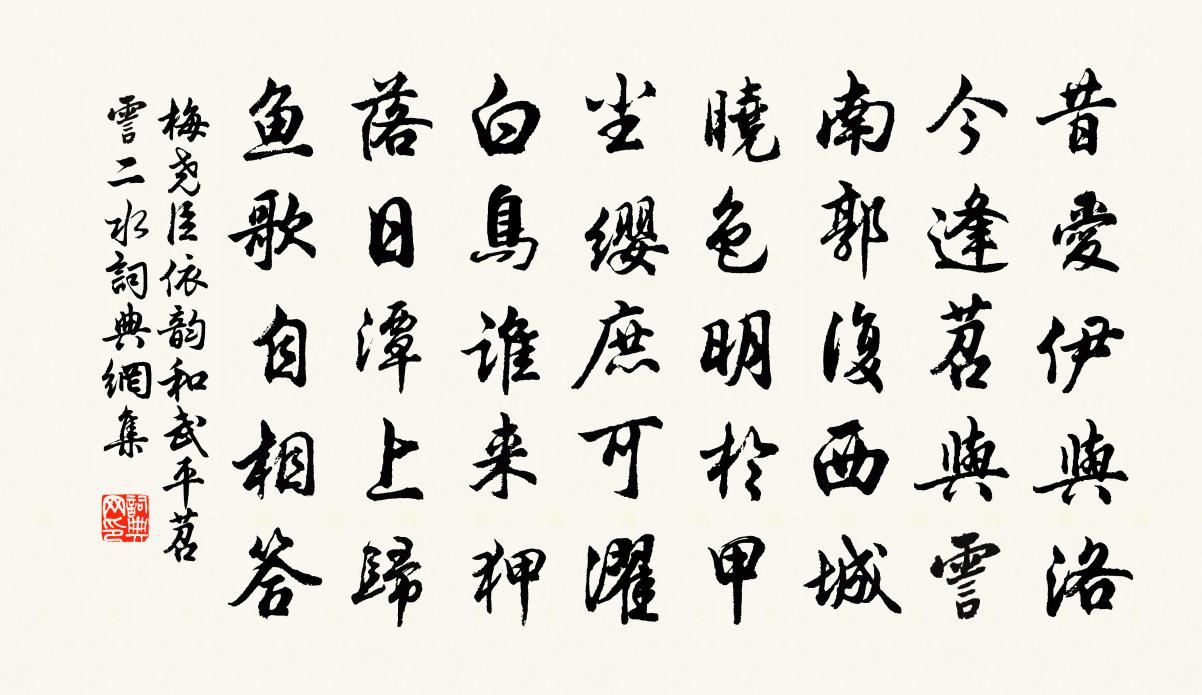 昔愛伊與洛
今逢苕與霅
南郭復西城
曉色明於甲
尘纓庶可濯
白鳥誰来狎
落日潭上歸
鱼歌自相答
梅尧臣依韵和武平苕
霅二水詞典網集
詞典网印